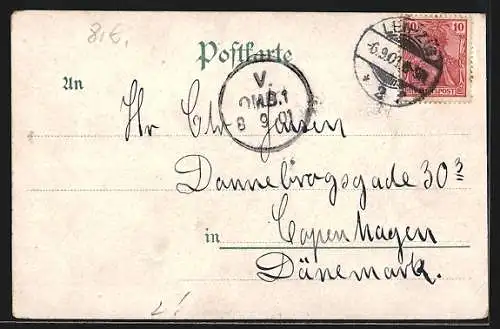 8.€.
Postkarte
LEIPZIG
-6.9.01
* 2
10
An
V.
OMB.1
8 9 01
Hr Chr Jansen
Dannebrogsgade 30³
in Copenhagen
Dänemark.